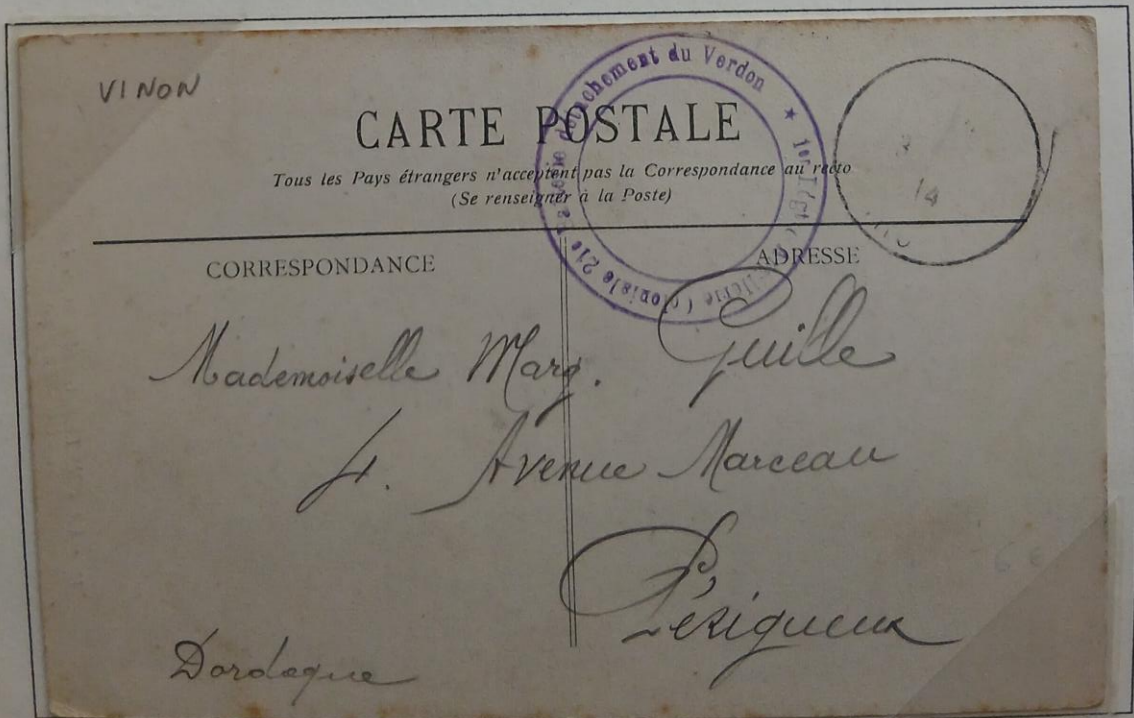 VINON
CARTE POSTALE
Tous les Pays étrangers n'acceptent pas la Correspondance au recto
(Se renseigner à la Poste)
détachement du Verdon ★ 1er Coloniale 21e
14
CORRESPONDANCE
ADRESSE
Mademoiselle Marg. Guille
4. Avenue Marceau
Périgueux
Dordogne